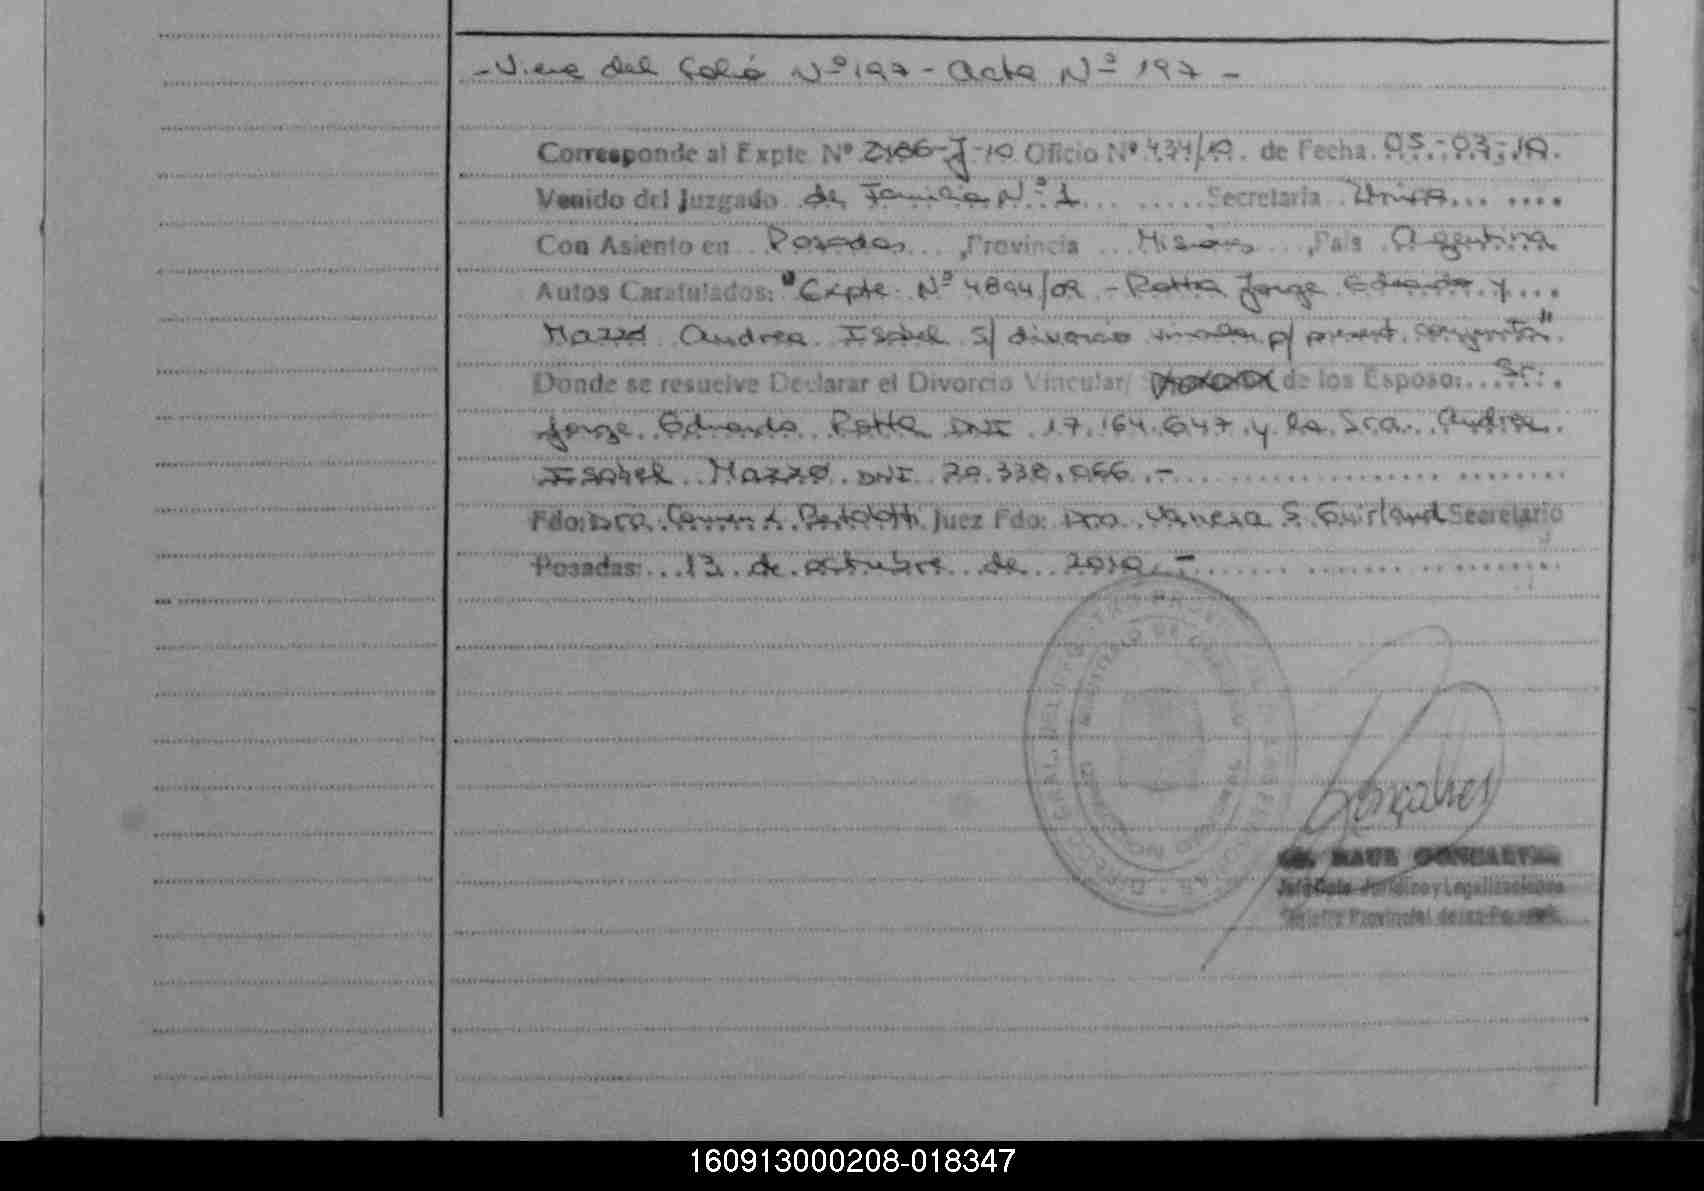 - Viene del folio Nº 197 - Acta Nº 197 -
Corresponde al Expte. Nº 2186-J-10 Oficio Nº 434/10. de Fecha 05-03-10.
Venido del Juzgado de Familia Nº 1 Secretaria Unica
Con Asiento en Posadas, Provincia Misiones, Pais Argentina
Autos Caratulados: "Expte. Nº 4894/09 - Rotta Jorge Eduardo y
Mazzo Andrea Isabel S/ divorcio vincular p/ present. conjunta"
Donde se resuelve Declarar el Divorcio Vincular/ de los Esposo: Sr.
Jorge Eduardo Rotta DNI 17.164.647 y la Sra. Andrea
Isabel Mazzo DNI 20.338.066.-
Fdo: Dra. Juez Fdo: Dra. Vanesa S. Guirland Secretario
Posadas: 13 de octubre de 2010.-
Gonçalves
RAUL GONCALVES
Jefe Dpto. Juridico y Legalizaciones
Registro Provincial de las Personas
160913000208-018347